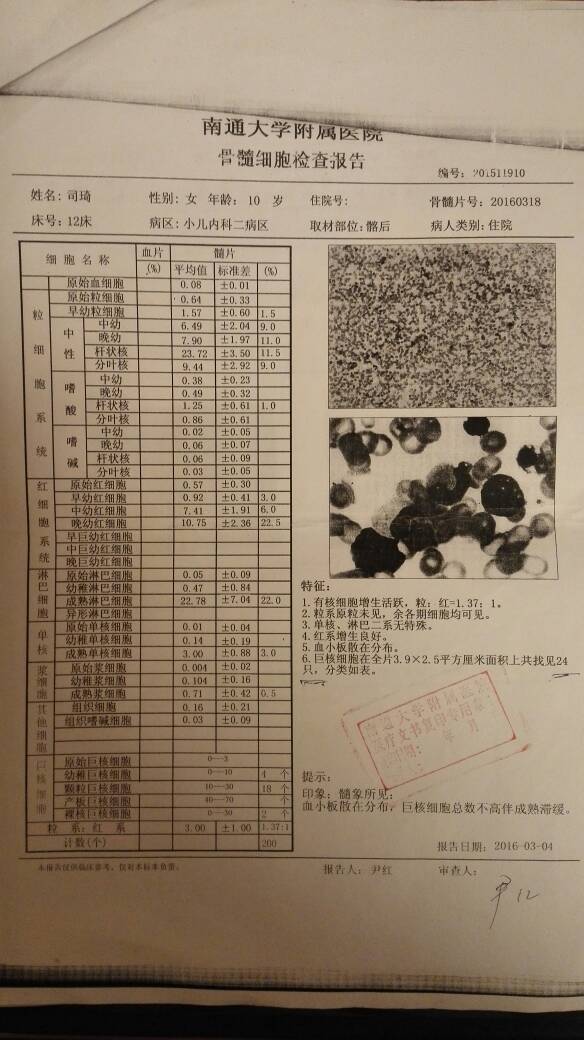 南通大学附属医院
骨髓细胞检查报告
编号: 201511910
姓名: 司琦 性别: 女 年龄: 10 岁 住院号: 骨髓片号: 20160318
床号: 12床 病区: 小儿内科二病区 取材部位: 髂后 病人类别: 住院
细胞名称 血片 髓片
(%) 平均值 标准差 (%)
原始血细胞 0.08 ±0.01
粒细胞系统
原始粒细胞 0.64 ±0.33
早幼粒细胞 1.57 ±0.60 1.5
中性
中幼 6.49 ±2.04 9.0
晚幼 7.90 ±1.97 11.0
杆状核 23.72 ±3.50 11.5
分叶核 9.44 ±2.92 9.0
嗜酸
中幼 0.38 ±0.23
晚幼 0.49 ±0.32
杆状核 1.25 ±0.61 1.0
分叶核 0.86 ±0.61
嗜碱
中幼 0.02 ±0.05
晚幼 0.06 ±0.07
杆状核 0.06 ±0.09
分叶核 0.03 ±0.05
红细胞系统
原始红细胞 0.57 ±0.30
早幼红细胞 0.92 ±0.41 3.0
中幼红细胞 7.41 ±1.91 6.0
晚幼红细胞 10.75 ±2.36 22.5
早巨幼红细胞
中巨幼红细胞
晚巨幼红细胞
淋巴细胞
原始淋巴细胞 0.05 ±0.09
幼稚淋巴细胞 0.47 ±0.84
成熟淋巴细胞 22.78 ±7.04 22.0
异形淋巴细胞
单核
原始单核细胞 0.01 ±0.04
幼稚单核细胞 0.14 ±0.19
成熟单核细胞 3.00 ±0.88 3.0
浆细胞
原始浆细胞 0.004 ±0.02
幼稚浆细胞 0.104 ±0.16
成熟浆细胞 0.71 ±0.42 0.5
其他细胞
组织细胞 0.16 ±0.21
组织嗜碱细胞 0.03 ±0.09
巨核细胞
原始巨核细胞 0--3
幼稚巨核细胞 0--10 4 个
颗粒巨核细胞 10--30 18 个
产板巨核细胞 40--70 个
裸核巨核细胞 0--30 2 个
粒 系: 红 系 3.00 ±1.00 1.37:1
计数(个) 200
特征:
1. 有核细胞增生活跃, 粒: 红=1.37: 1。
2. 粒系原粒未见, 余各期细胞均可见。
3. 单核、淋巴二系无特殊。
4. 红系增生良好。
5. 血小板散在分布。
6. 巨核细胞在全片3.9×2.5平方厘米面积上共找见24
只, 分类如表。
南通大学附属医院
医疗文书复印专用章
日期: 年 月
提示:
印象: 髓象所见:
血小板散在分布, 巨核细胞总数不高伴成熟滞缓。
报告日期: 2016-03-04
本报告仅供临床参考, 仅对本标本负责。 报告人: 尹红 审查人:
尹红